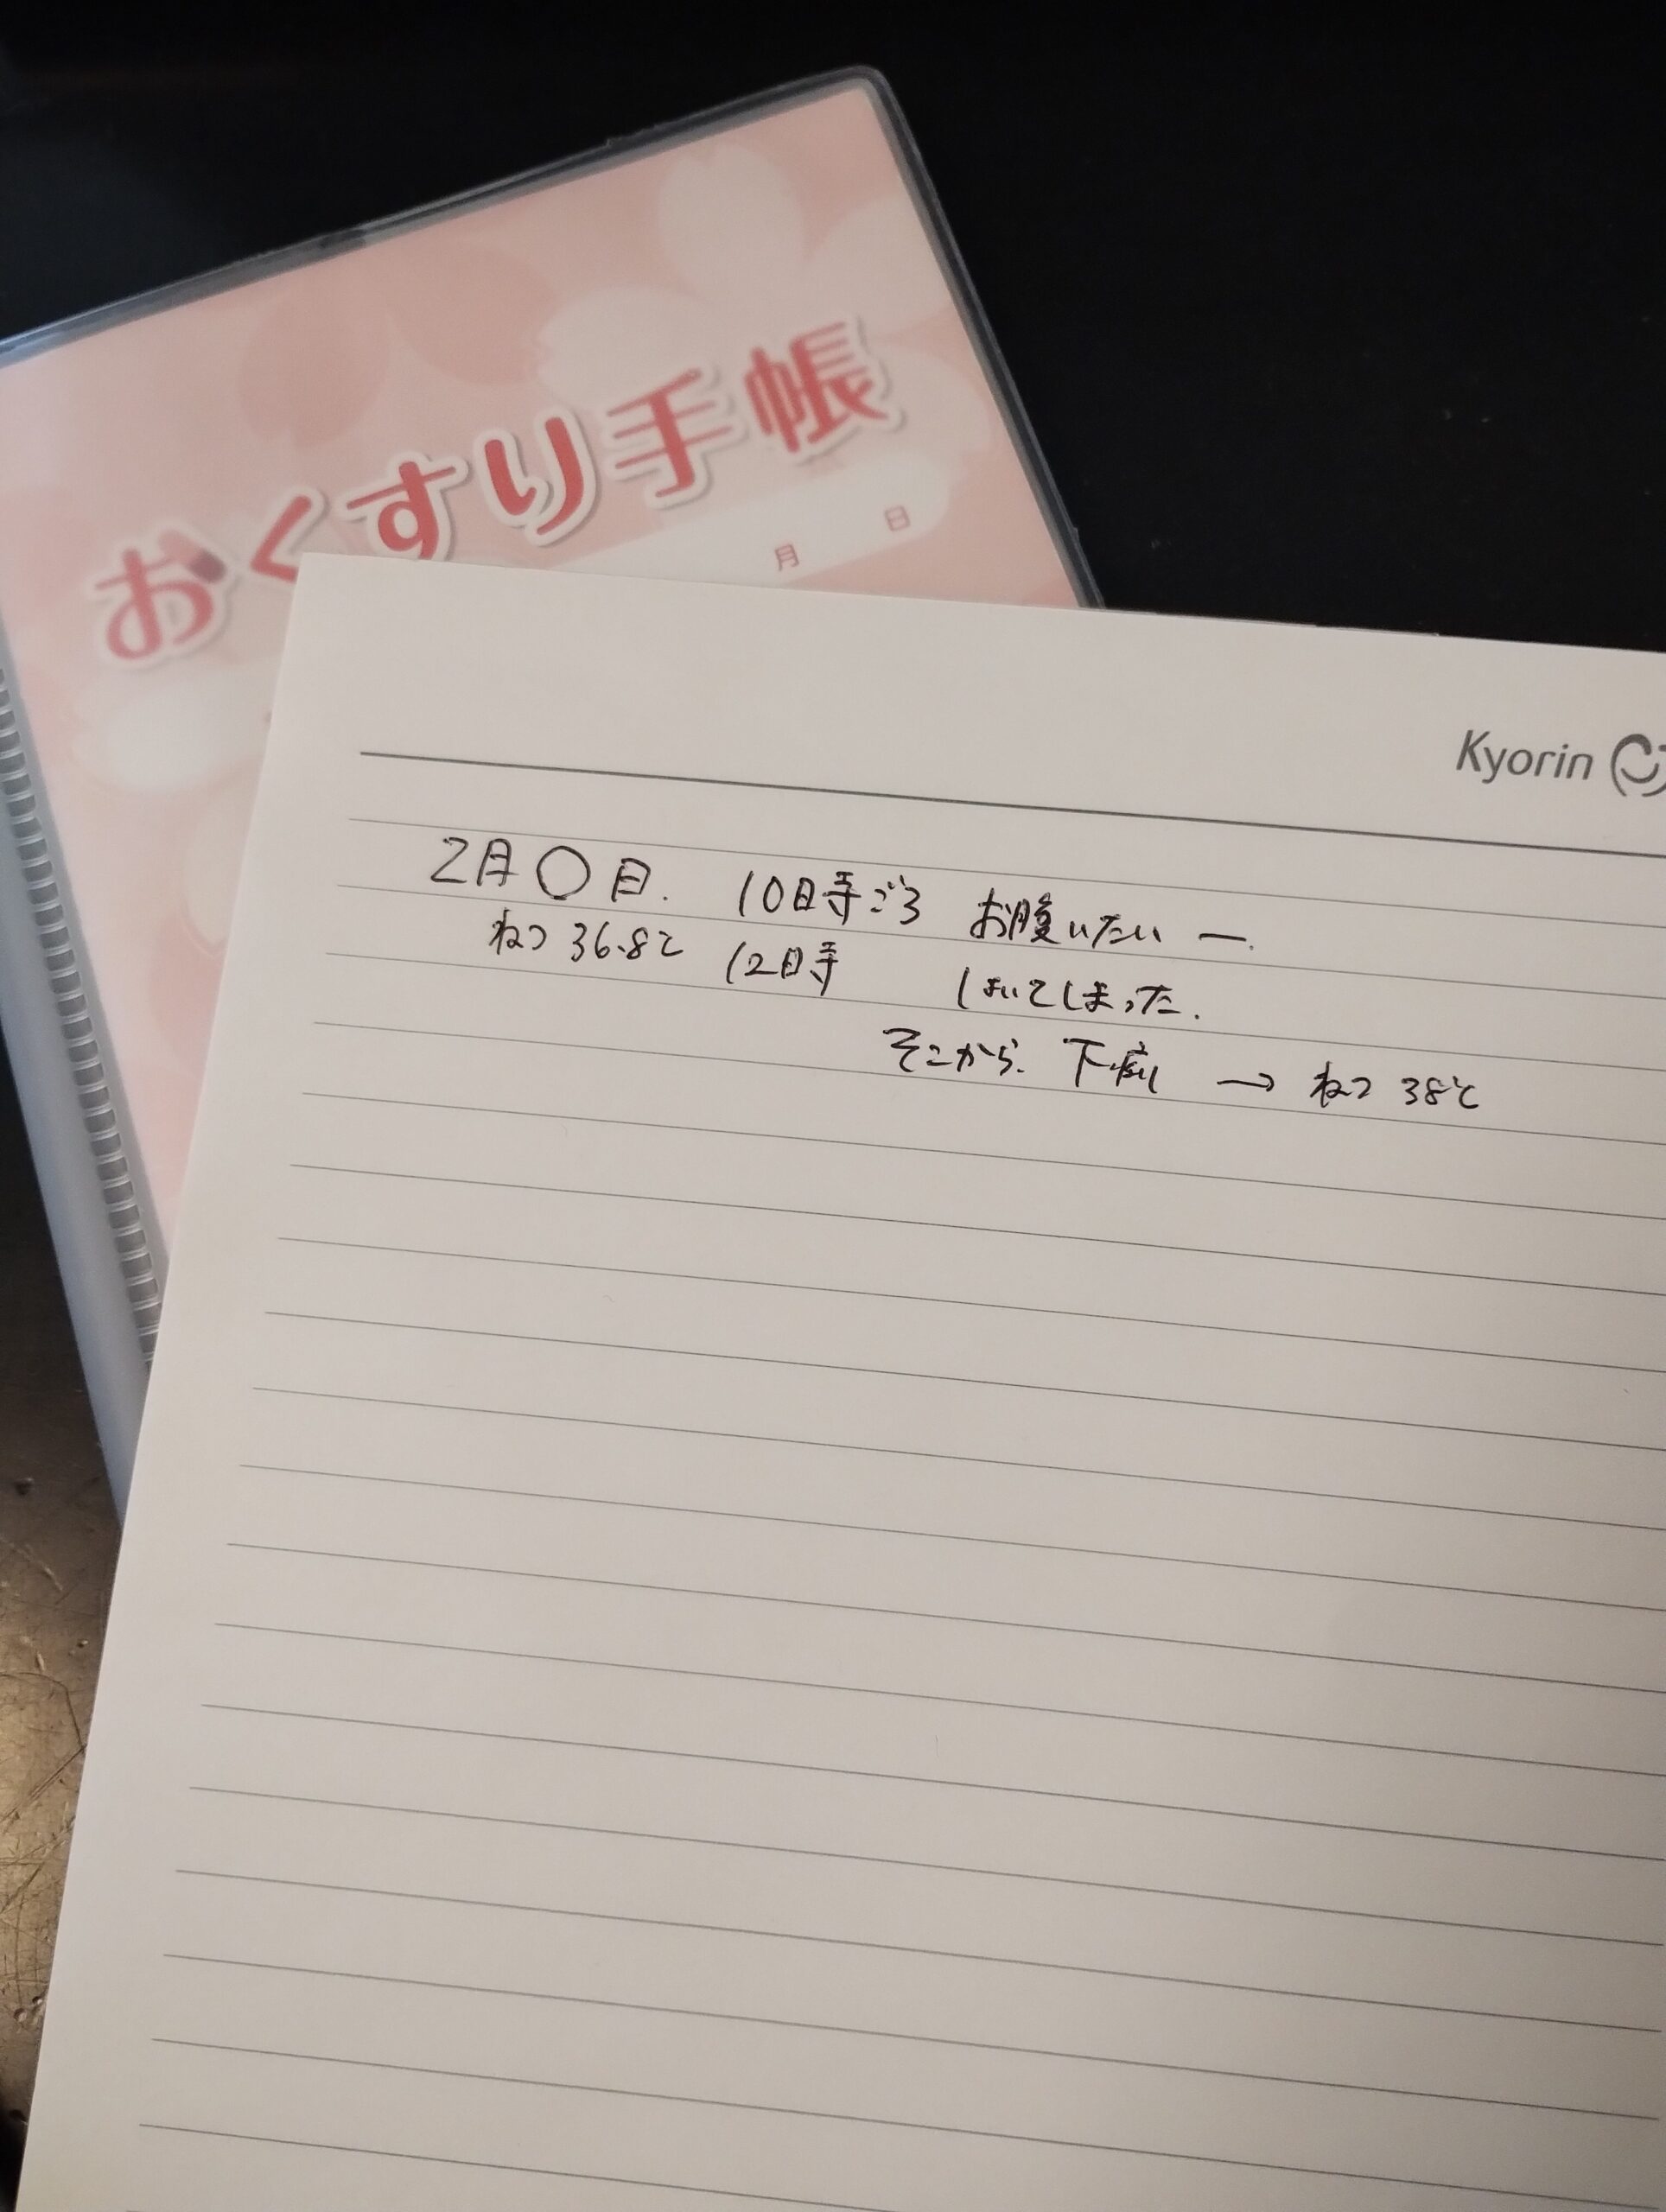 おくすり手帳
月 日
Kyorin
2月〇日. 10時ごろ お腹いたい ー.
ねつ 36.8℃ 12時 はいてしまった.
そこから. 下痢 → ねつ 38℃